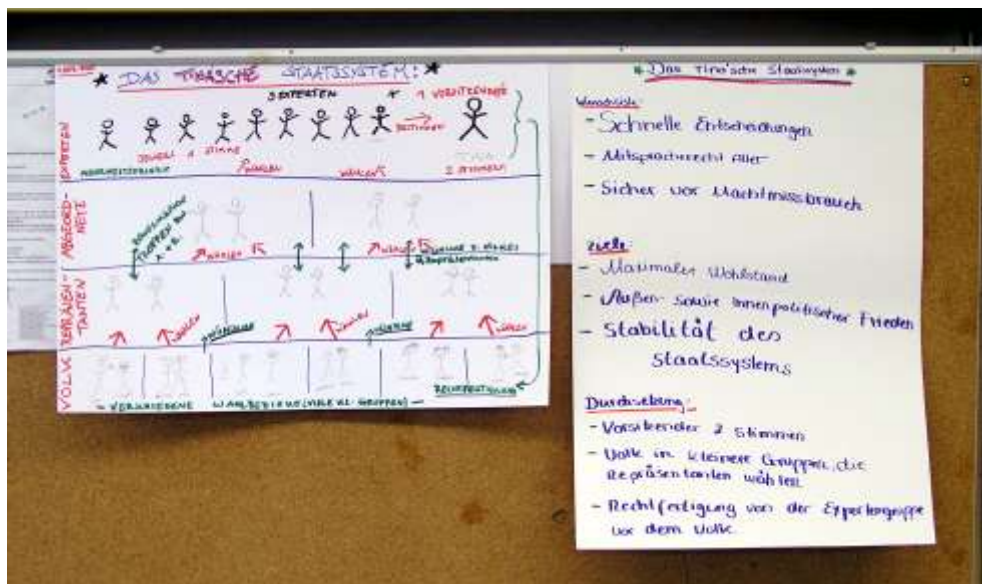 * DAS TINASCHE STAATSSYSTEM: *
9 EXPERTEN + 1 VORSITZENDE
BESTIMMEN
JEWEILS 1 STIMME
2 STIMMEN
WÄHLEN
WÄHLEN
EXPERTEN
ABGEORD-
NETE
WÄHLEN
WÄHLEN
REPRÄSEN-
TANTEN
WÄHLEN
WÄHLEN
WÄHLEN
VOLK
RECHTFERTIGUNG
- VERSCHIEDENE WAHLBEZIRKE (VIELE KL. GRUPPEN) -
* Das Tina'sche Staatssystem *
- Schnelle Entscheidungen
- Mitspracherecht Aller
- Sicher vor Machtmissbrauch
Ziele:
- Maximaler Wohlstand
- Außen sowie innenpolitischer Frieden
- Stabilität des
Staatssystems
Durchsetzung:
- Vorsitzender 2 Stimmen
- Volk in kleinere Gruppen, die
Repräsentanten wählen
- Rechtfertigung von der Expertengruppe
vor dem Volk